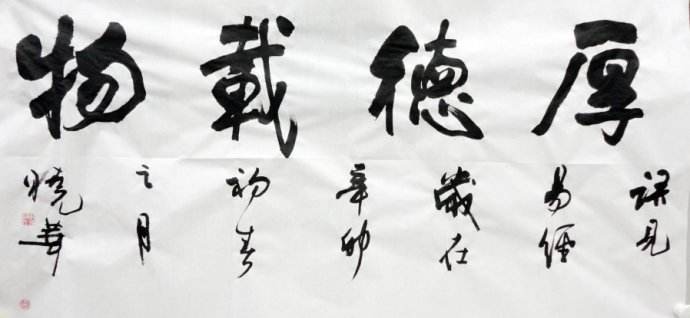 厚德載物
語見
易經
歲在
辛卯
初春
之月
曉華